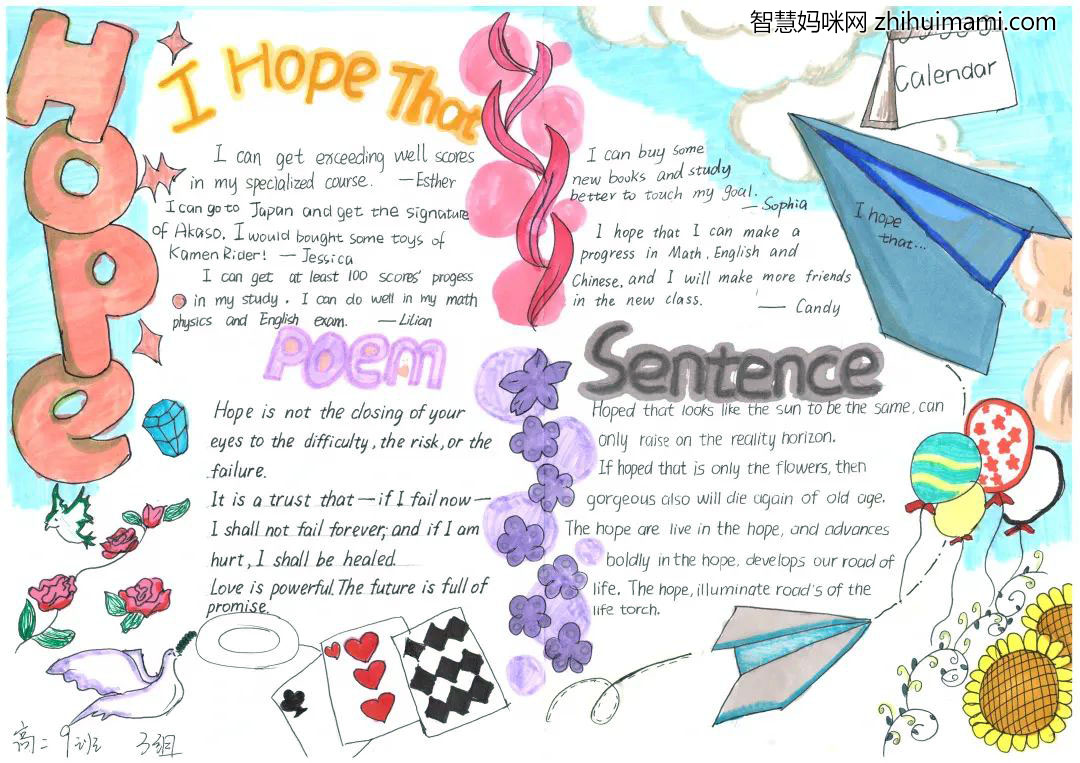 智慧妈咪网 zhihuimami.com
Hope
I Hope That
I can get exceeding well scores
in my specialized course. —Esther
I can go to Japan and get the signature
of Akaso. I would bought some toys of
Kamen Rider! — Jessica
I can get at least 100 scores' progess
in my study. I can do well in my math
physics and English exam. —Lilian
I can buy some
new books and study
better to touch my goal.
— Sophia
I hope that I can make a
progress in Math, English and
Chinese, and I will make more friends
in the new class.
— Candy
Calendar
I hope
that...
Poem
Hope is not the closing of your
eyes to the difficulty, the risk, or the
failure.
It is a trust that — if I fail now —
I shall not fail forever; and if I am
hurt, I shall be healed.
Love is powerful. The future is full of
promise.
Sentence
Hoped that looks like the sun to be the same, can
only raise on the reality horizon.
If hoped that is only the flowers, then
gorgeous also will die again of old age.
The hope are live in the hope, and advances
boldly in the hope, develops our road of
life. The hope, illuminate road's of the
life torch.
高二9班 3组